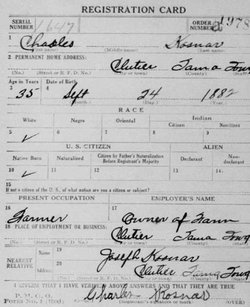 REGISTRATION CARD
SERIAL NUMBER 1647 ORDER NUMBER 1978
1 Charles Kosnar
(First name) (Middle name) (Last name)
2 PERMANENT HOME ADDRESS:
Clutier Tama Iowa
(No.) (Street or R. F. D. No.) (City or town) (County) (State)
Age in Years Date of Birth
3 35 4 Sept 24 1882
(Month) (Day) (Year)
RACE
White Negro Oriental Indian
Citizen Noncitizen
5 ✓ 6 7 8 9
U. S. CITIZEN ALIEN
Native Born Naturalized Citizen by Father's Naturalization Before Registrant's Majority Declarant Non-declarant
10 ✓ 11 12 13 14
15 If not a citizen of the U. S., of what nation are you a citizen or subject?
PRESENT OCCUPATION EMPLOYER'S NAME
16 Farmer 17 Owner of Farm
18 PLACE OF EMPLOYMENT OR BUSINESS:
Clutier Tama Iowa
(No.) (Street or R. F. D. No.) (City or town) (County) (State)
NEAREST RELATIVE Name 19 Joseph Kosnar
Address 20 Clutier Tama Iowa
(No.) (Street or R. F. D. No.) (City or town) (County) (State)
I AFFIRM THAT I HAVE VERIFIED ABOVE ANSWERS AND THAT THEY ARE TRUE
P. M. G. O.
Form No. 1 (Red) Charles Kosnar